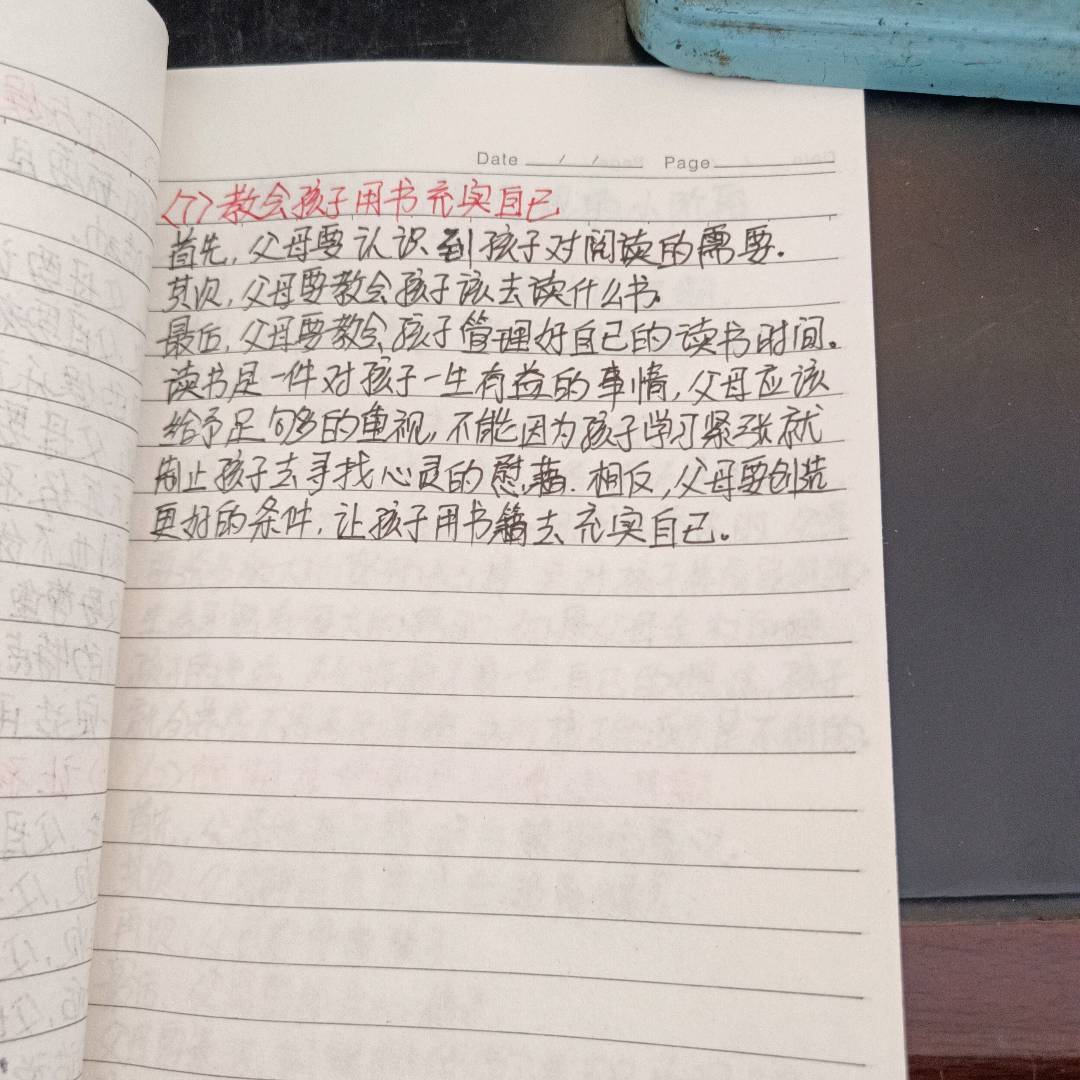 Date / / Page
〈7〉教会孩子用书充实自己
首先,父母要认识到孩子对阅读的需要.
其次,父母要教会孩子该去读什么书。
最后,父母要教会孩子管理好自己的读书时间。
读书是一件对孩子一生有益的事情,父母应该
给予足够多的重视,不能因为孩子学习紧张就
制止孩子去寻找心灵的慰藉.相反,父母要创造
更好的条件,让孩子用书籍去充实自己。